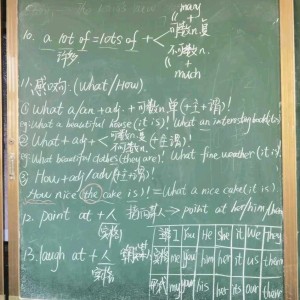 many
"
可数n.复
10. a lot of = lots of +
许多
不可数n.
"
much
11. 感叹句 (What/How).
① What a/an + adj + 可数n.单(+主+谓)!
eg: What a beautiful house (it is)! What an interesting book (it is)
② What + adj + 可数n.复 (+主谓)!
不可数n.
eg: What beautiful clothes (they are)! What fine weather (it is)
③ How + adj/adv (+主+谓)!
How nice the cake is)! = What a nice cake (it is).
12. point at + 人 → point at her/him/them
宾格
13. laugh at + 人
宾格
主 I You He She it We They
宾 me you him her it us them
my his her its our their